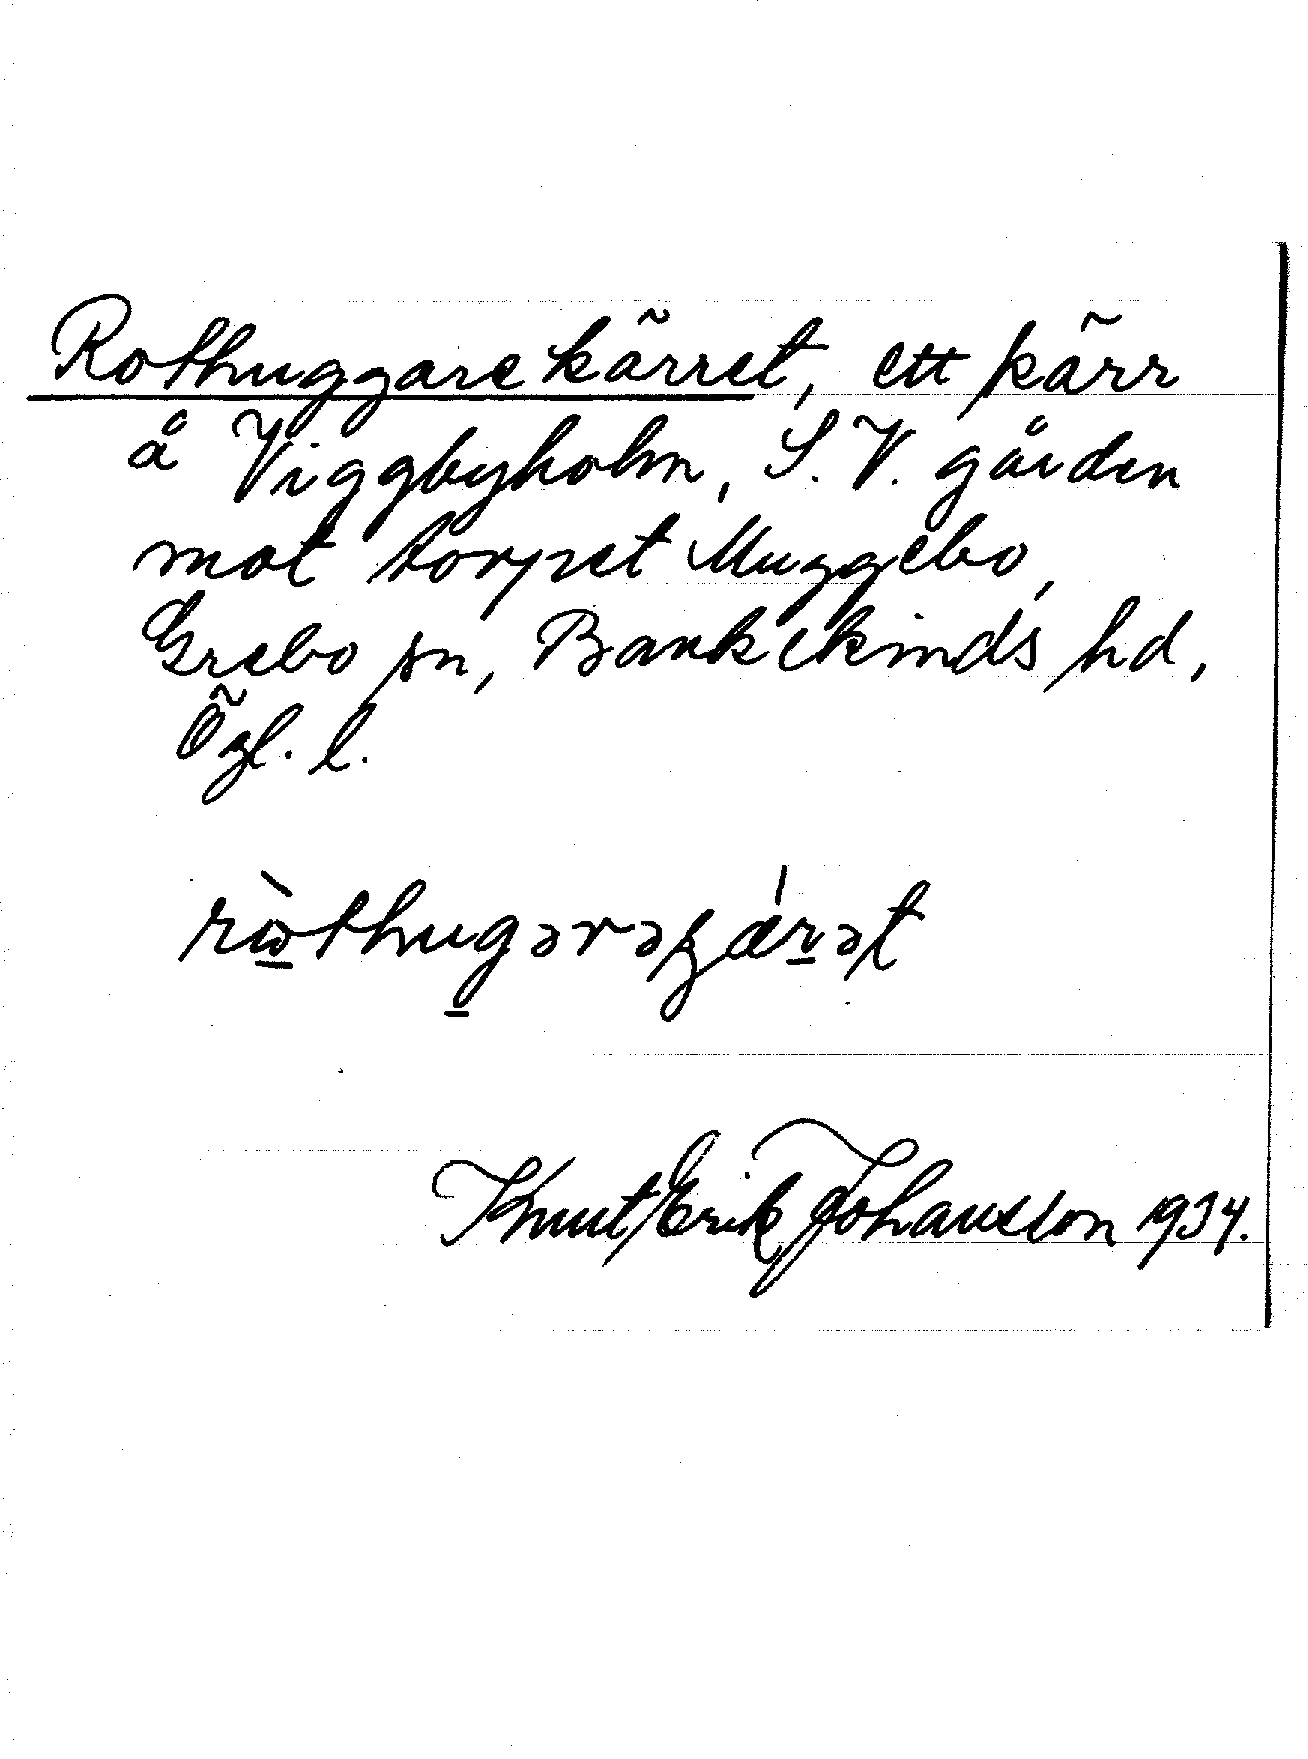 Rothuggarekärret, ett kärr
å Viggbyholm, S.V. gården
mot torpet Muggebo,
Grebo sn, Bankekinds hd,
Ögl. l.
Knut Erik Johansson 1934.